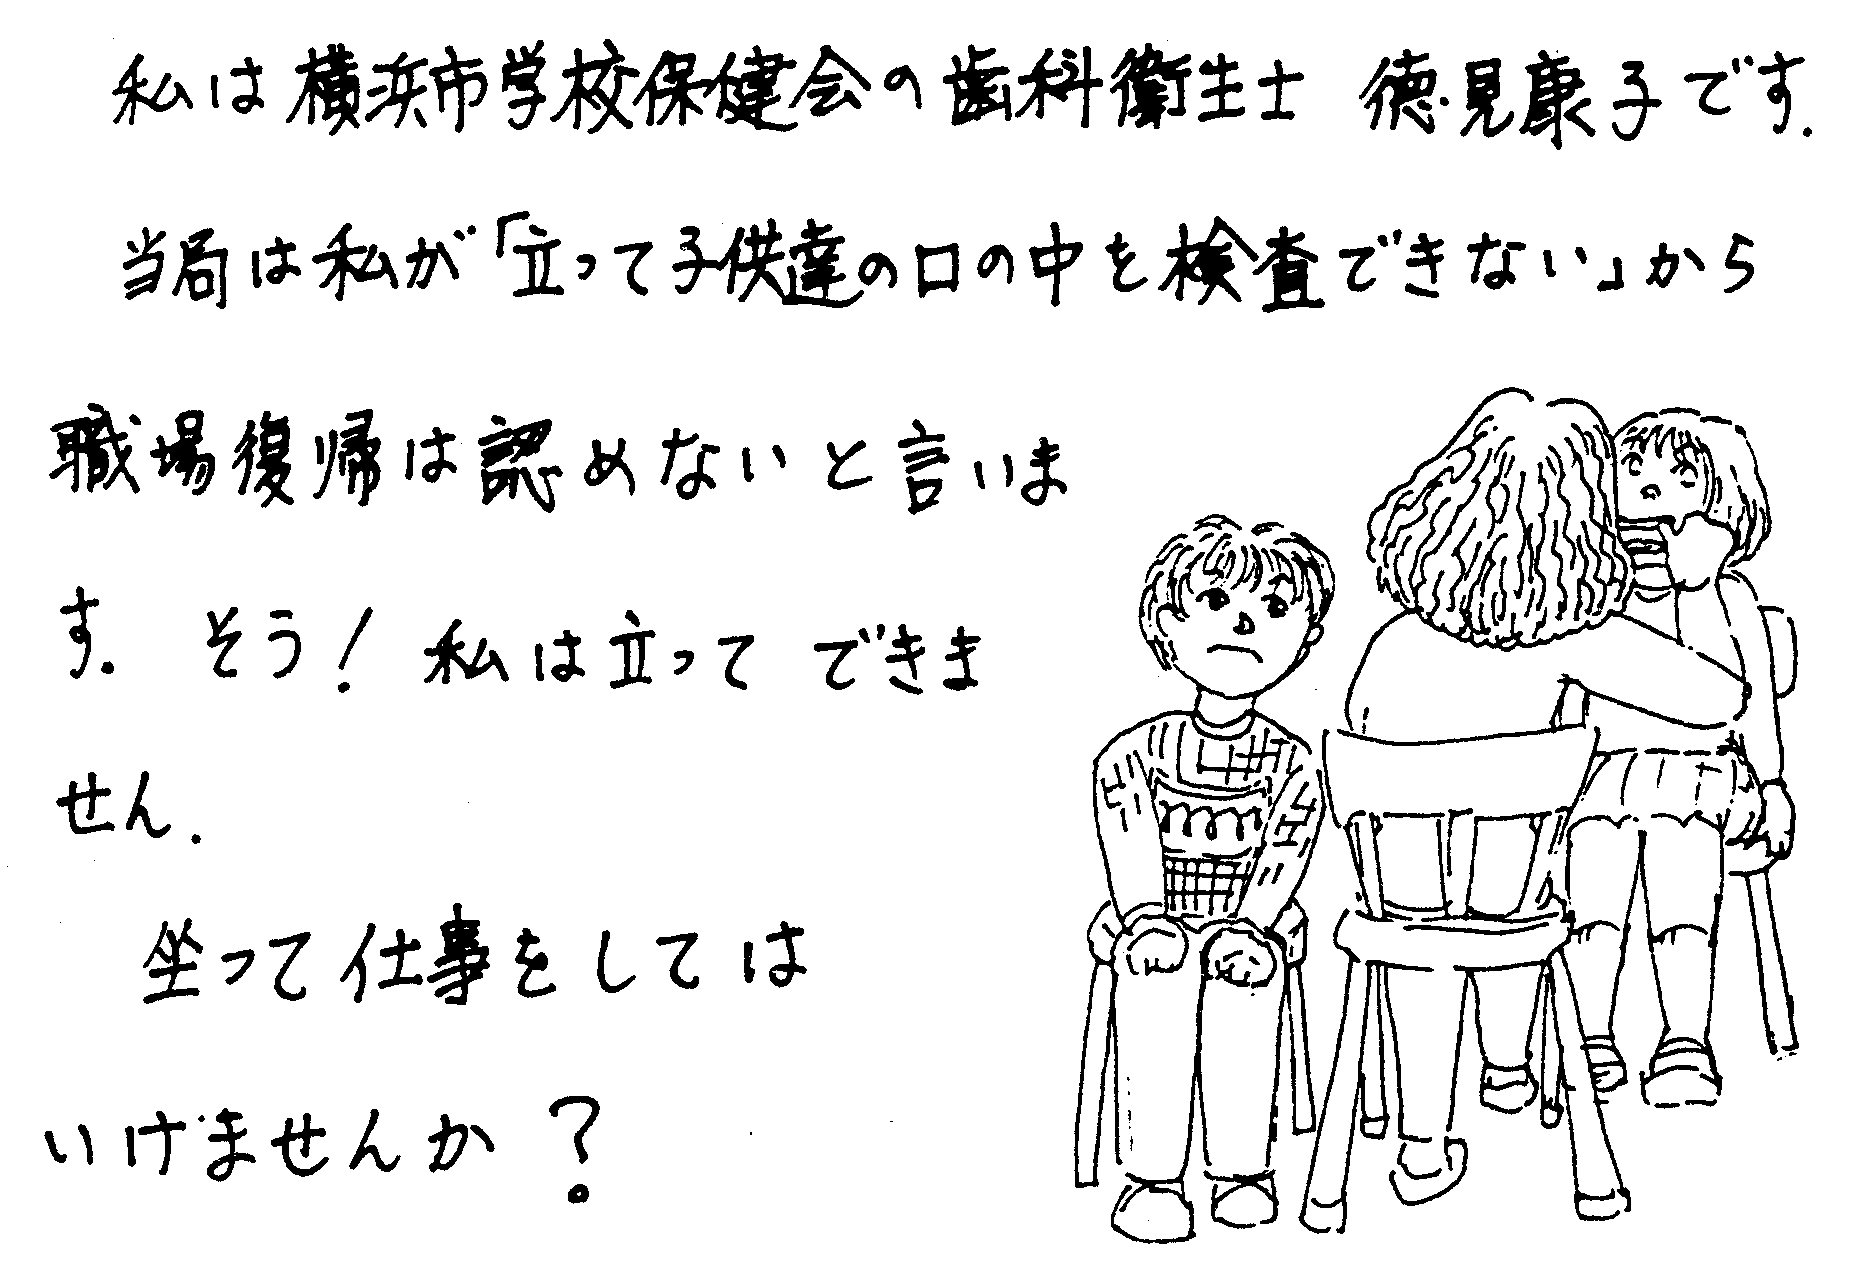 私は横浜市学校保健会の歯科衛生士 徳見康子です.
当局は私が「立って子供達の口の中を検査できない」から
職場復帰は認めないと言いま
す. そう! 私は立って できま
せん.
坐って仕事をしては
いけませんか?